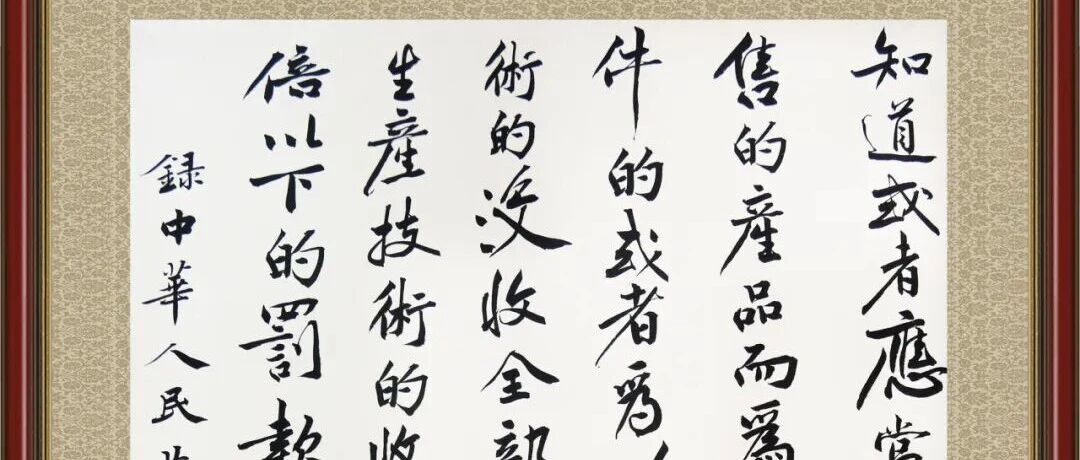 知道或者應當
售的產品而爲
件的或者爲
術的没收全部
生產技術的收
倍以下的罰款
録中華人民